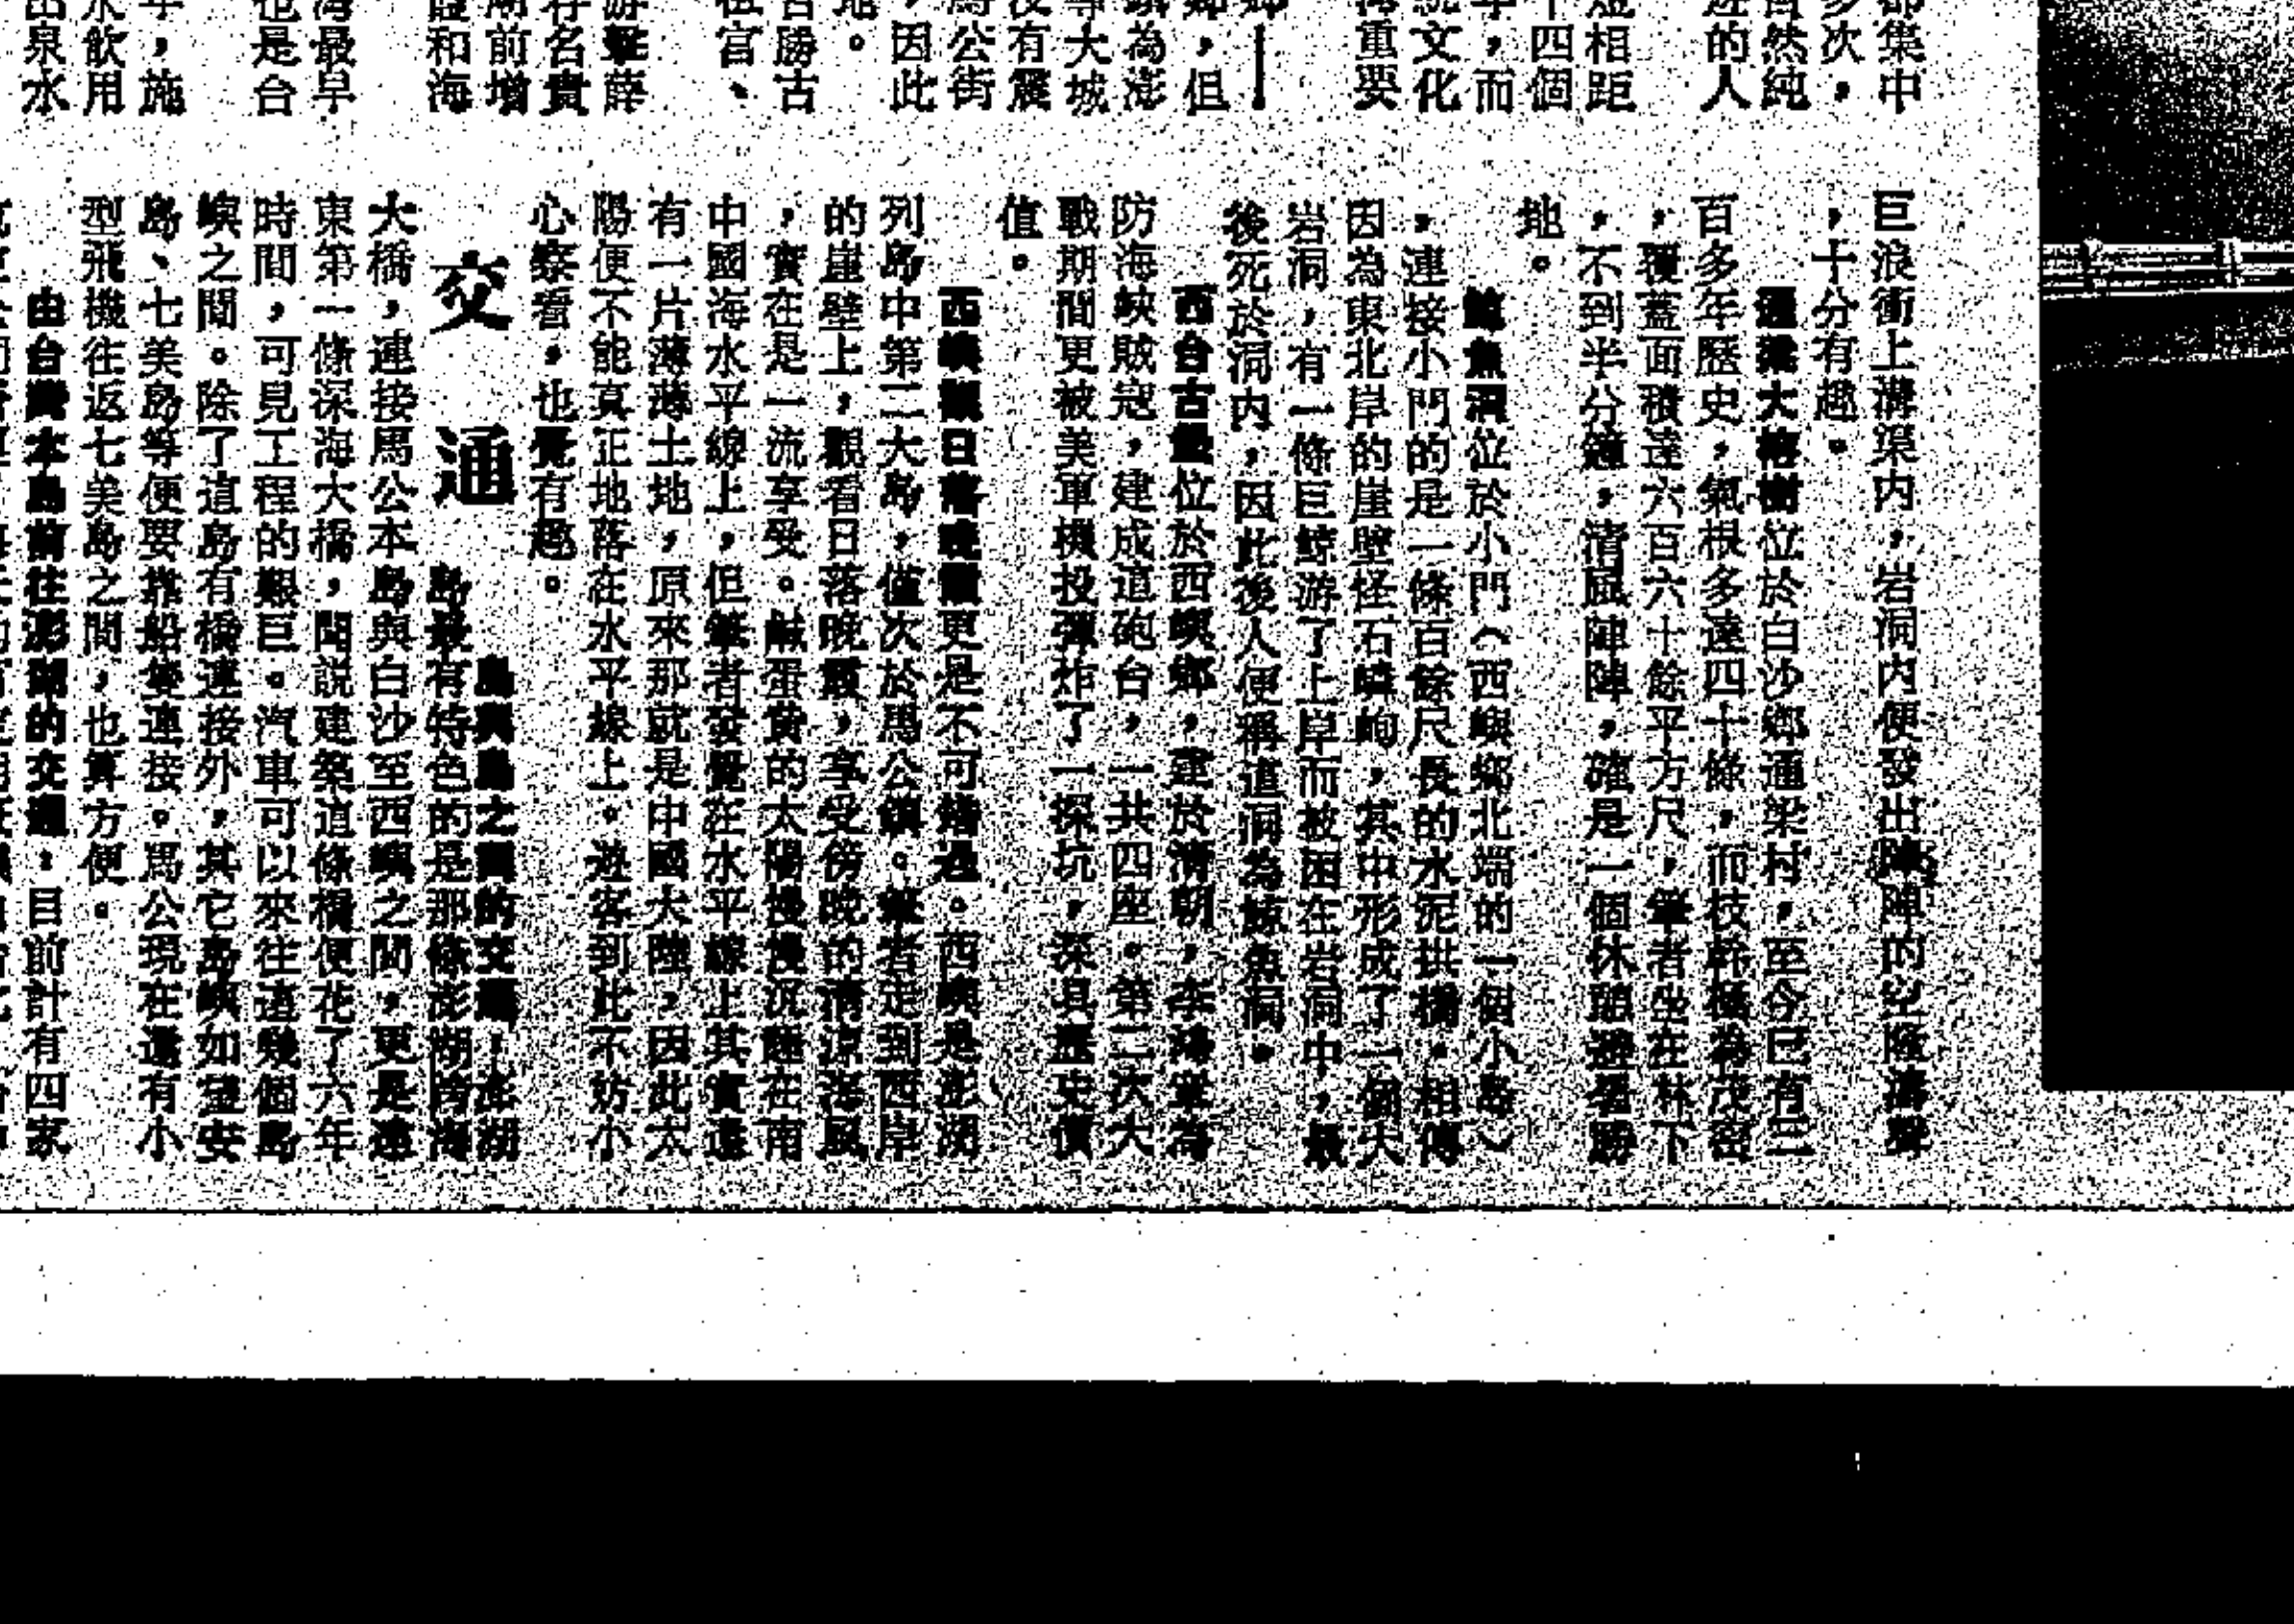 都集中
多次，
自然純
遊的人
短相距
十四個
年，而
統文化
灣重要
鄉——
鄉，但
鎮為澎
等大城
沒有震
馬公街
，因此
地。
古勝古
祖官、
游擊薛
存名貴
湖前增
證和海
海最早
也是台
年，施
水飲用
出泉水
巨浪衝上溝渠內，岩洞內便發出陣陣的空隆濤聲
，十分有趣。
通梁大榕樹位於白沙鄉通梁村，至今已有三
百多年歷史，氣根多達四十條，而枝幹極為茂密
，覆蓋面積達六百六十餘平方尺，筆者坐在林下
，不到半分鐘，清風陣陣，確是一個休憩避暑勝
地。
鯨魚洞位於小門（西嶼鄉北端的一個小島）
，連接小門的是一條百餘尺長的水泥拱橋。相傳
因為東北岸的崖壁怪石嶙峋，其中形成了一個大
岩洞，有一條巨鯨游了上岸而被困在岩洞中，最
後死於洞內，因此後人便稱這洞為鯨魚洞。
西台古堡位於西嶼鄉，建於清朝，李鴻章為
防海峽賊寇，建成這砲台，一共四座。第二次大
戰期間更被美軍機投彈炸了一深坑，深具歷史價
值。
西嶼觀日落晚霞更是不可錯過。西嶼是澎湖
列島中第二大島，僅次於馬公鎮。筆者走到西岸
的崖壁上，觀看日落晚霞，享受傍晚的清涼海風
，實在是一流享受。鹹蛋黃的太陽慢慢沉睡在南
中國海水平線上，但筆者發覺在水平線上其實還
有一片薄薄土地，原來那就是中國大陸，因此太
陽便不能真正地落在水平線上。遊客到此不妨小
心察看，也覺有趣。
交通
島與島之間的交通：澎湖
島最有特色的是那條澎湖跨海
大橋，連接馬公本島與白沙至西嶼之間，更是遠
東第一條深海大橋，聞說建築這條橋便花了六年
時間，可見工程的艱巨。汽車可以來往這幾個島
嶼之間。除了這島有橋連接外，其它島嶼如望安
島、七美島等便要靠船隻連接。馬公現在還有小
型飛機往返七美島之間，也算方便。
由台灣本島前往澎湖的交通：目前計有四家